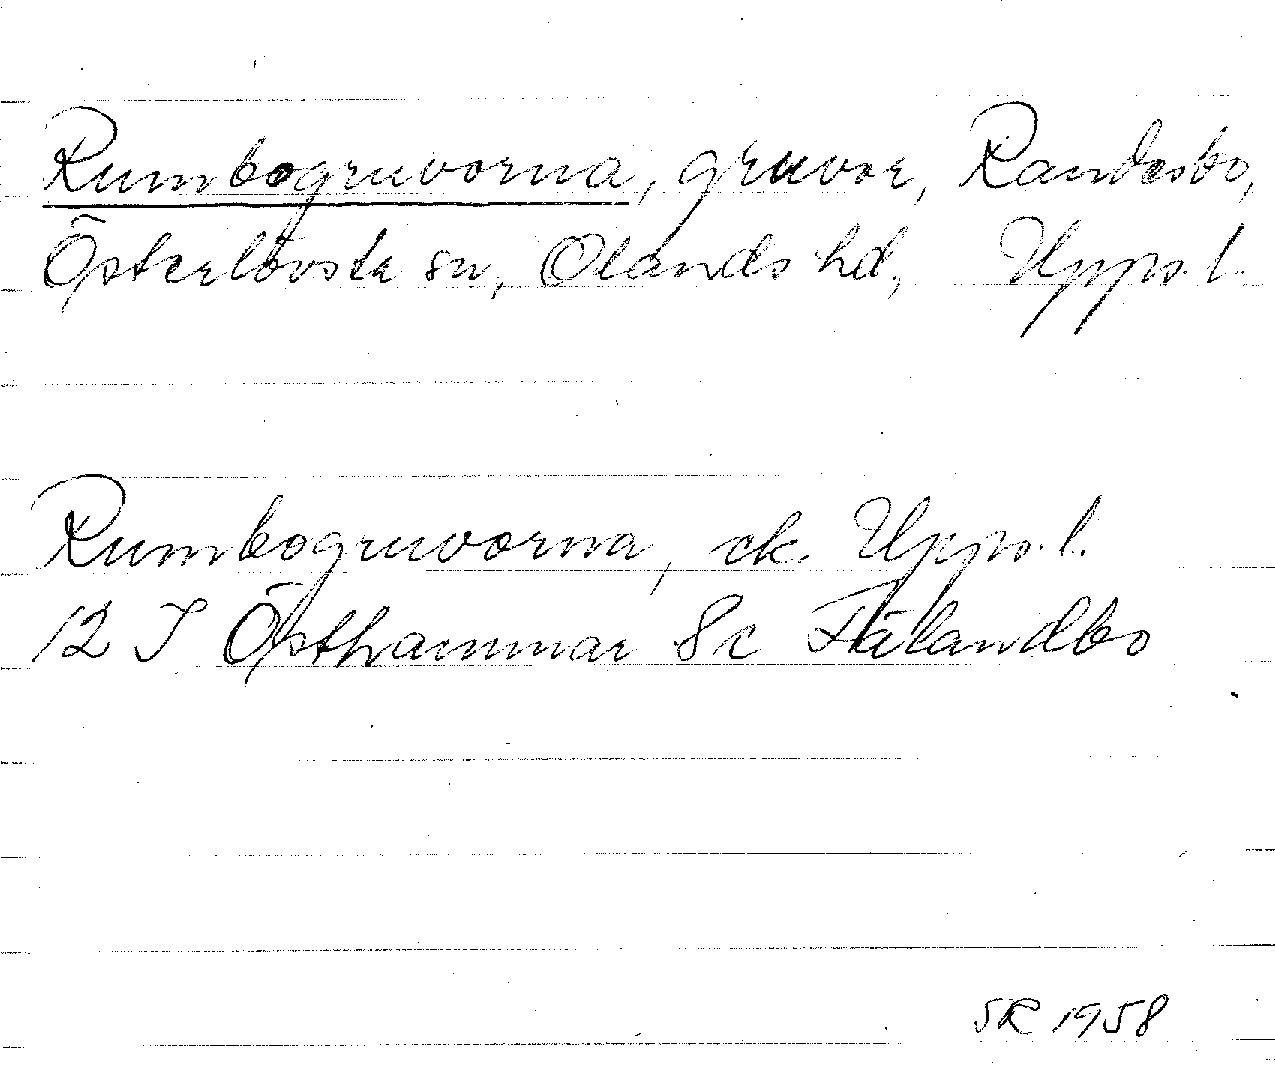 Rumbogruvorna, gruvor, Randesbo,
Österlövsta sn, Olands hd, Upps. l.
Rumbogruvorna, ek. Upps. l.
12 I Östhammar 8c Fälandbo
SR 1958